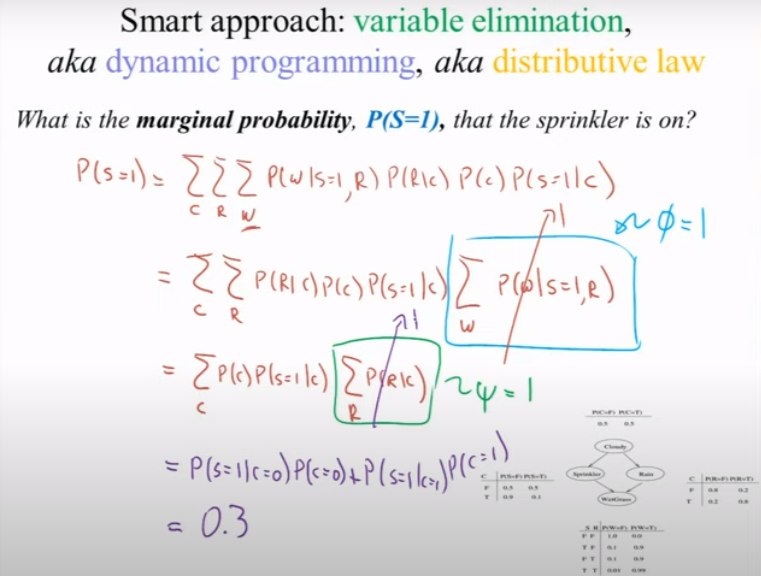 Smart approach: variable elimination,
aka dynamic programming, aka distributive law
What is the marginal probability, P(S=1), that the sprinkler is on?
P(S=1) = Σ_C Σ_R Σ_W P(W|S=1,R) P(R|C) P(C) P(S=1|C)
= Σ_C Σ_R P(R|C) P(C) P(S=1|C) Σ_W P(W|S=1,R) 1 ~ φ=1
= Σ_C P(C) P(S=1|C) Σ_R P(R|C) 1 ~ ψ=1
= P(S=1|C=0) P(C=0) + P(S=1|C=1) P(C=1)
= 0.3
P(C=F) P(C=T)
0.5 0.5
Cloudy
Sprinkler Rain
WetGrass
C P(S=F) P(S=T)
F 0.5 0.5
T 0.9 0.1
C P(R=F) P(R=T)
F 0.8 0.2
T 0.2 0.8
S R P(W=F) P(W=T)
F F 1.0 0.0
T F 0.1 0.9
F T 0.1 0.9
T T 0.01 0.99